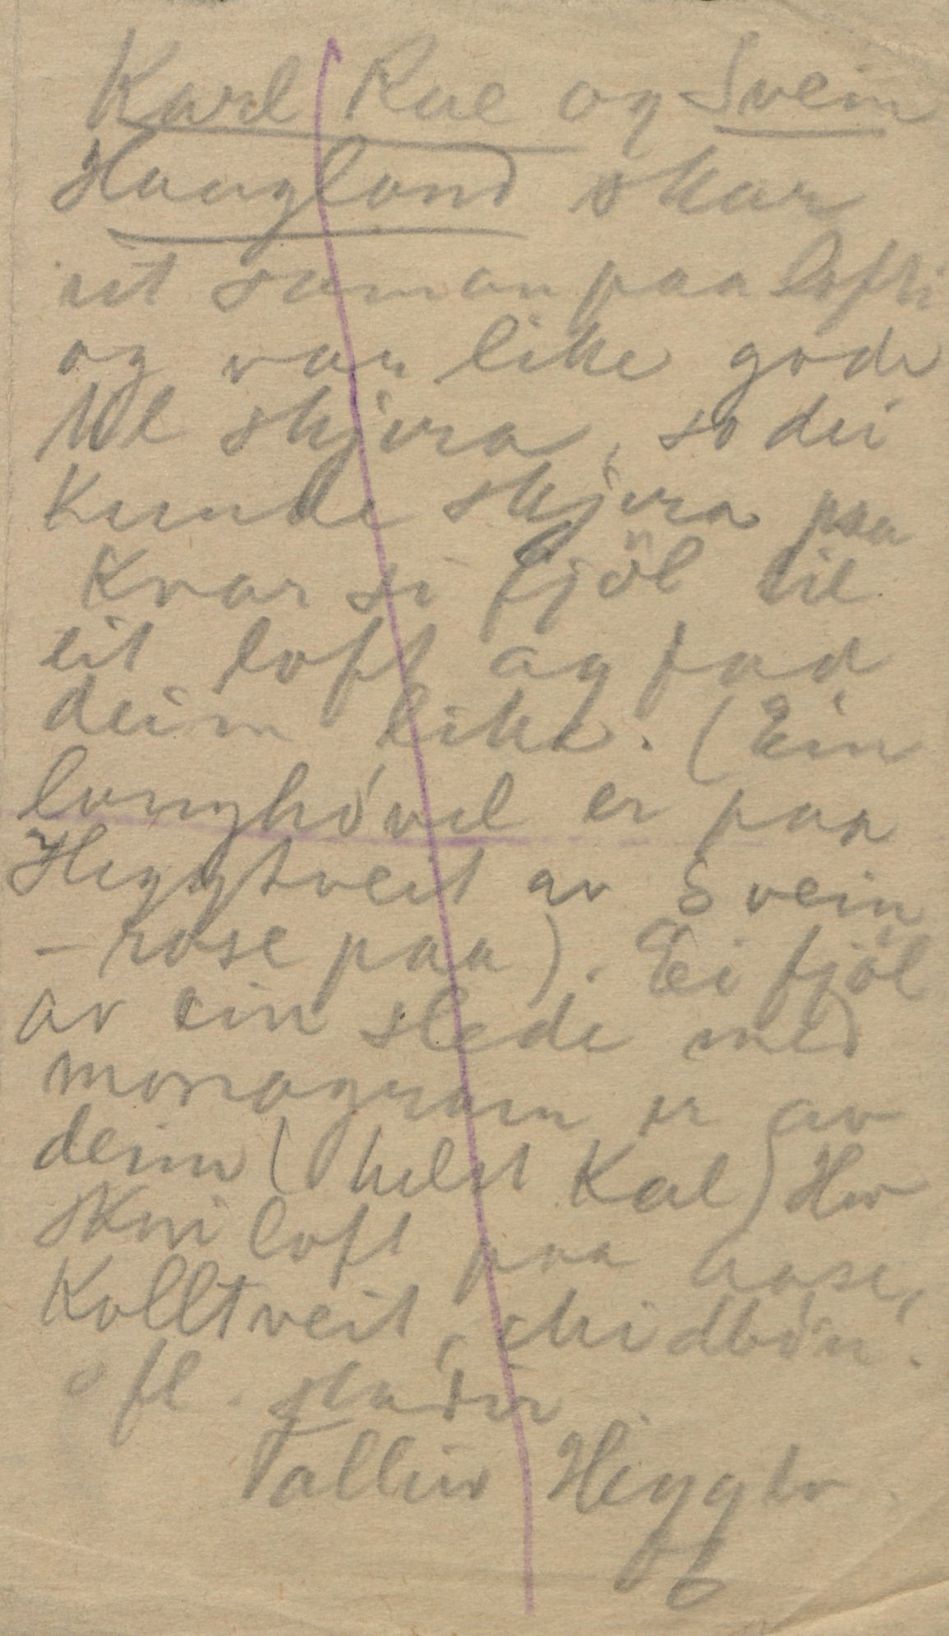 Karl Rue og Svein
Haugland skar
ut saman paa lofti
og var like gode
til skjera, so dei
kunde skjera paa
kvar si fjöl til
eit loft og faa
deim like. (Ein
langhövel er paa
Heggtveit av Svein
- rose paa). Ei fjöl
av ein slede med
monogram er av
deim (helst Kal) Hev
skori loft paa Aase,
Kolltveit,
o fl. stader
Talleiv Heggtv